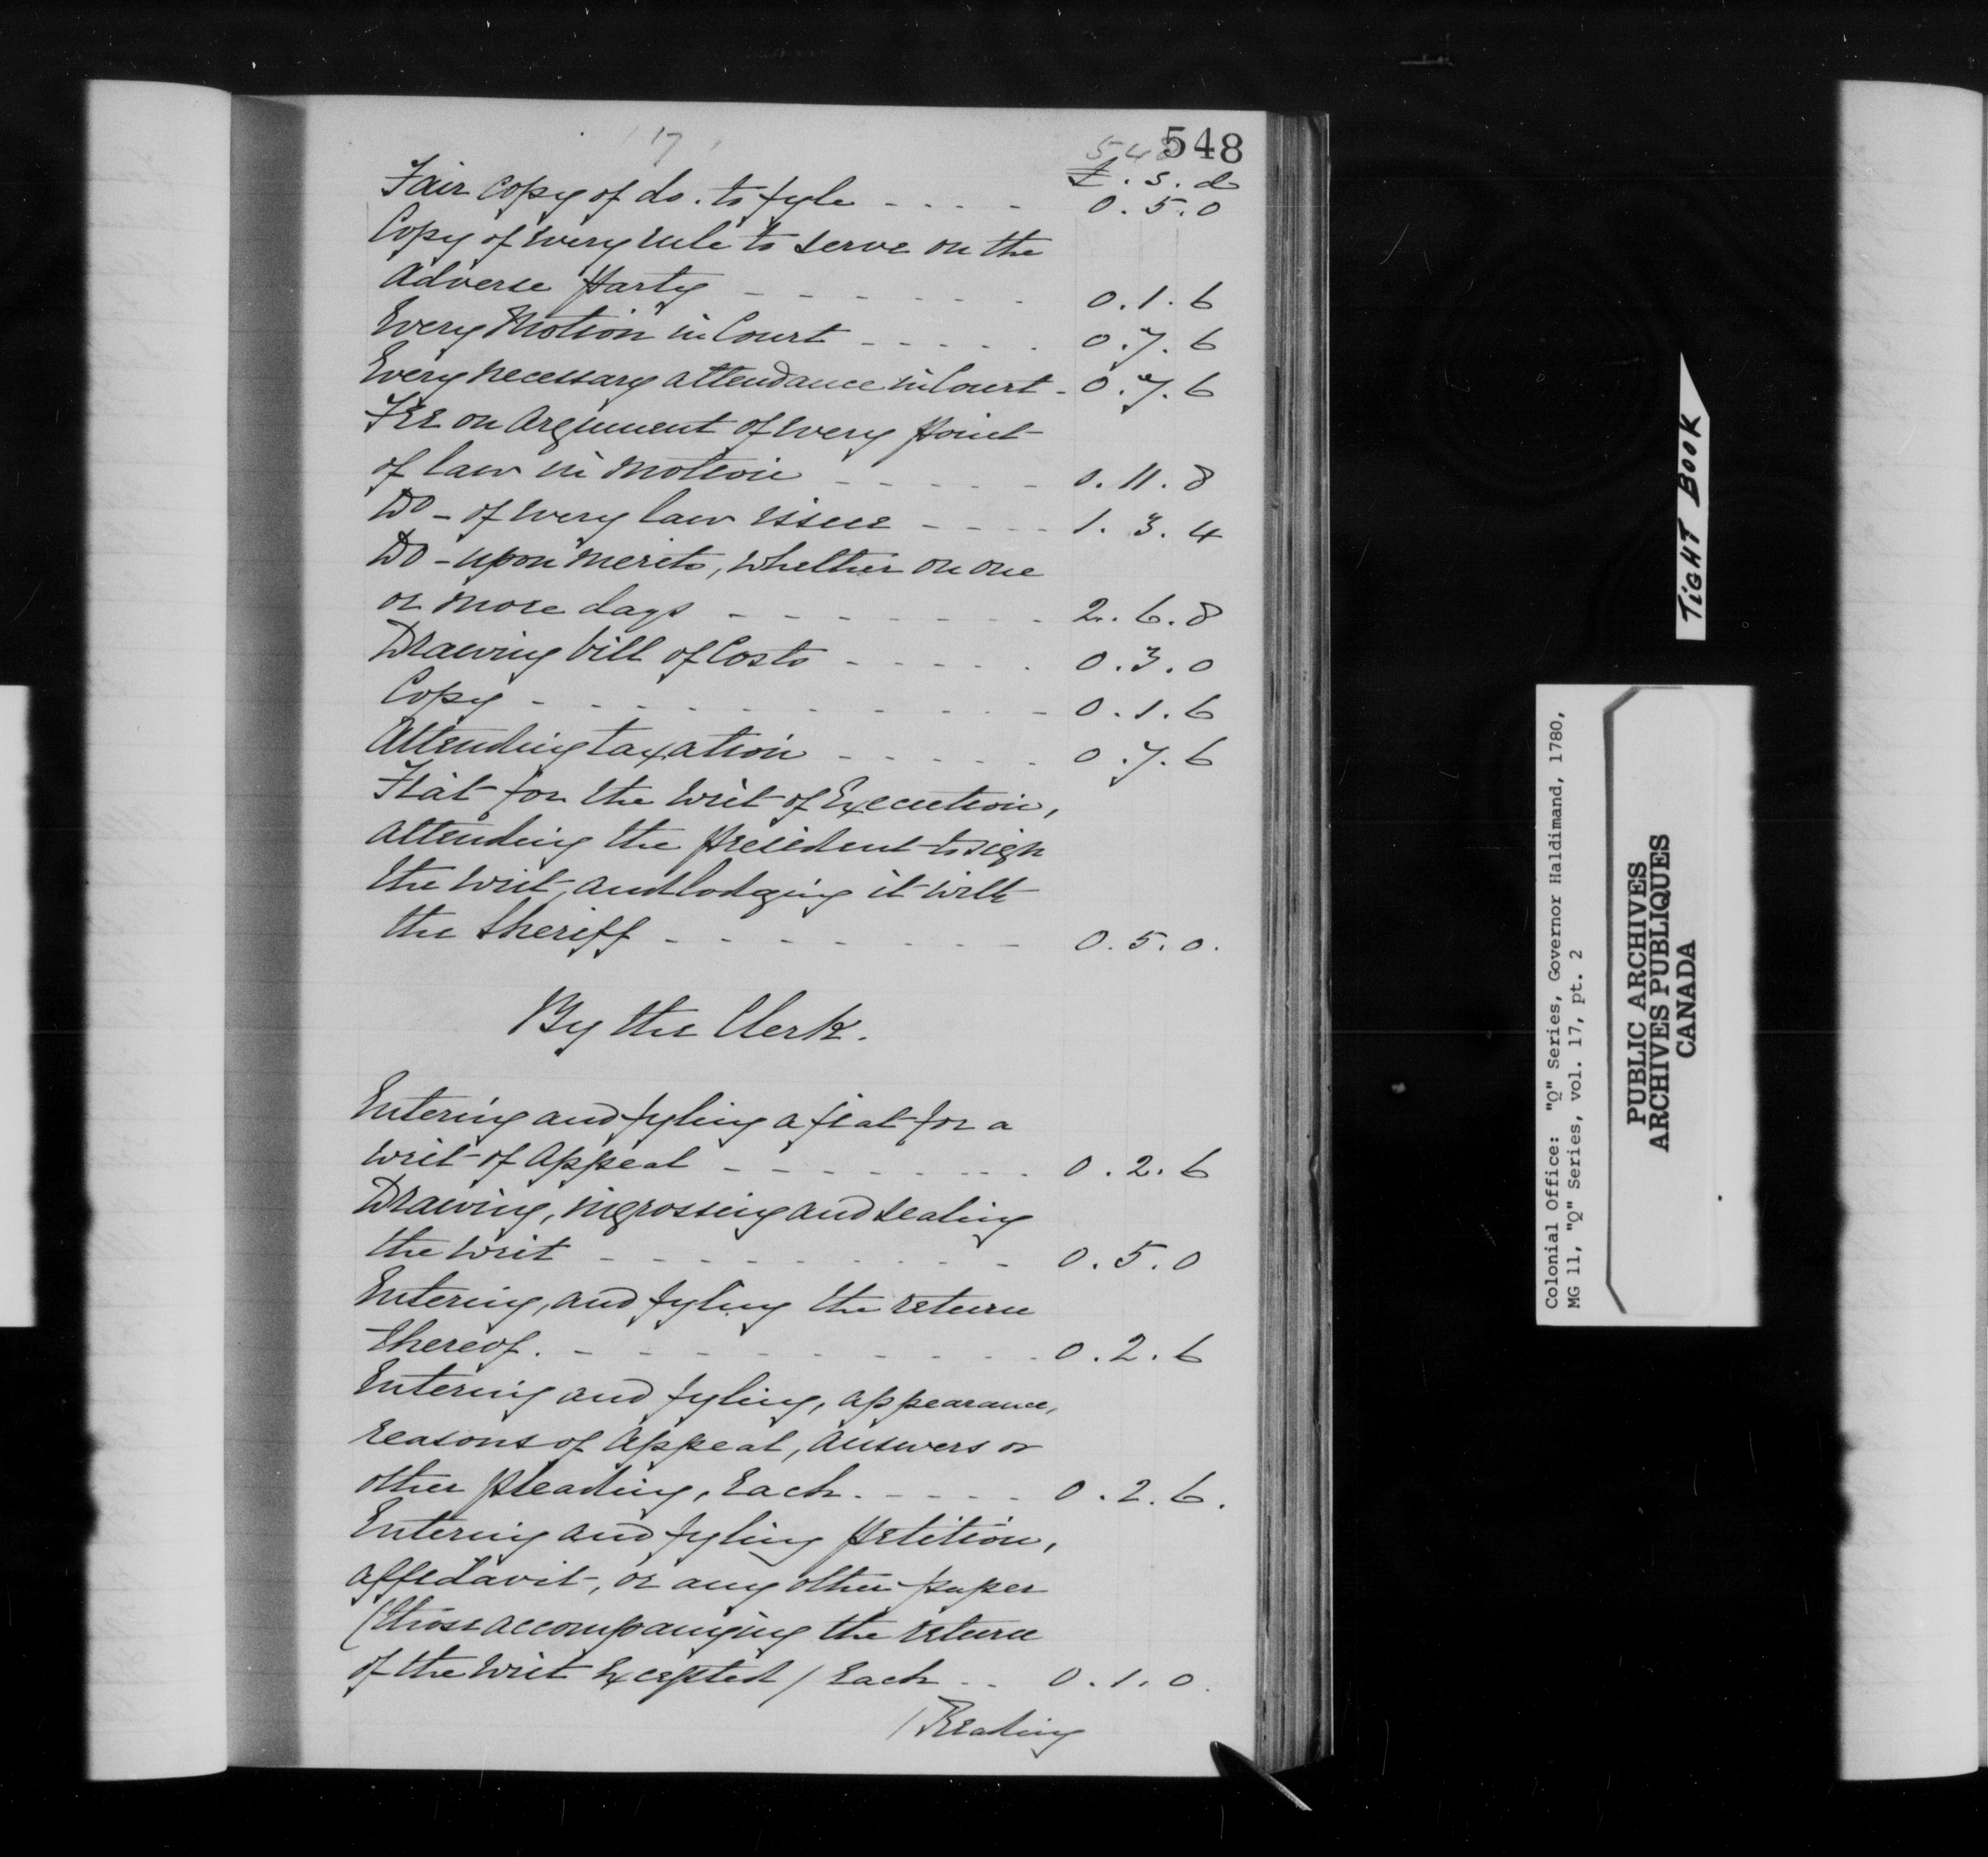 17
548
548
£. s. d
Fair copy of do. to fyle - - - - 0. 5. 0
Copy of every rule to serve on the
adverse party - - - - - - 0. 1. 6
Every Motion in Court - - - - - 0. 7. 6
Every necessary attendance in Court - 0. 7. 6
Fee on Argument of every point
of law in motion - - - - - 0. 11. 8
Do - of every law issue - - - - 1. 3. 4
Do - upon merits, whether on one
or more days - - - - - - - 2. 6. 8
Drawing bill of Costs - - - - - 0. 3. 0
Copy - - - - - - - - - - 0. 1. 6
Attending taxation - - - - - 0. 7. 6
Fiat for the writ of Execution,
attending the president to sign
the writ, and lodging it with
the Sheriff - - - - - - - 0. 5. 0.
By the Clerk.
Entering and fyling a fiat for a
writ of Appeal - - - - - - - 0. 2. 6
Drawing, ingrossing and sealing
the writ - - - - - - - - 0. 5. 0
Entering, and fyling the return
thereof. - - - - - - - - - 0. 2. 6
Entering and fyling, appearance,
reasons of Appeal, answers or
other pleading, each. - - - - 0. 2. 6.
Entering and fyling petition,
affidavit, or any other paper
(those accompanying the return
of the writ excepted / each - - 0. 1. 0.
/ Reading
TIGHT BOOK
Colonial Office: "Q" Series, Governor Haldimand, 1780,
MG 11, "Q" Series, vol. 17, pt. 2
PUBLIC ARCHIVES
ARCHIVES PUBLIQUES
CANADA